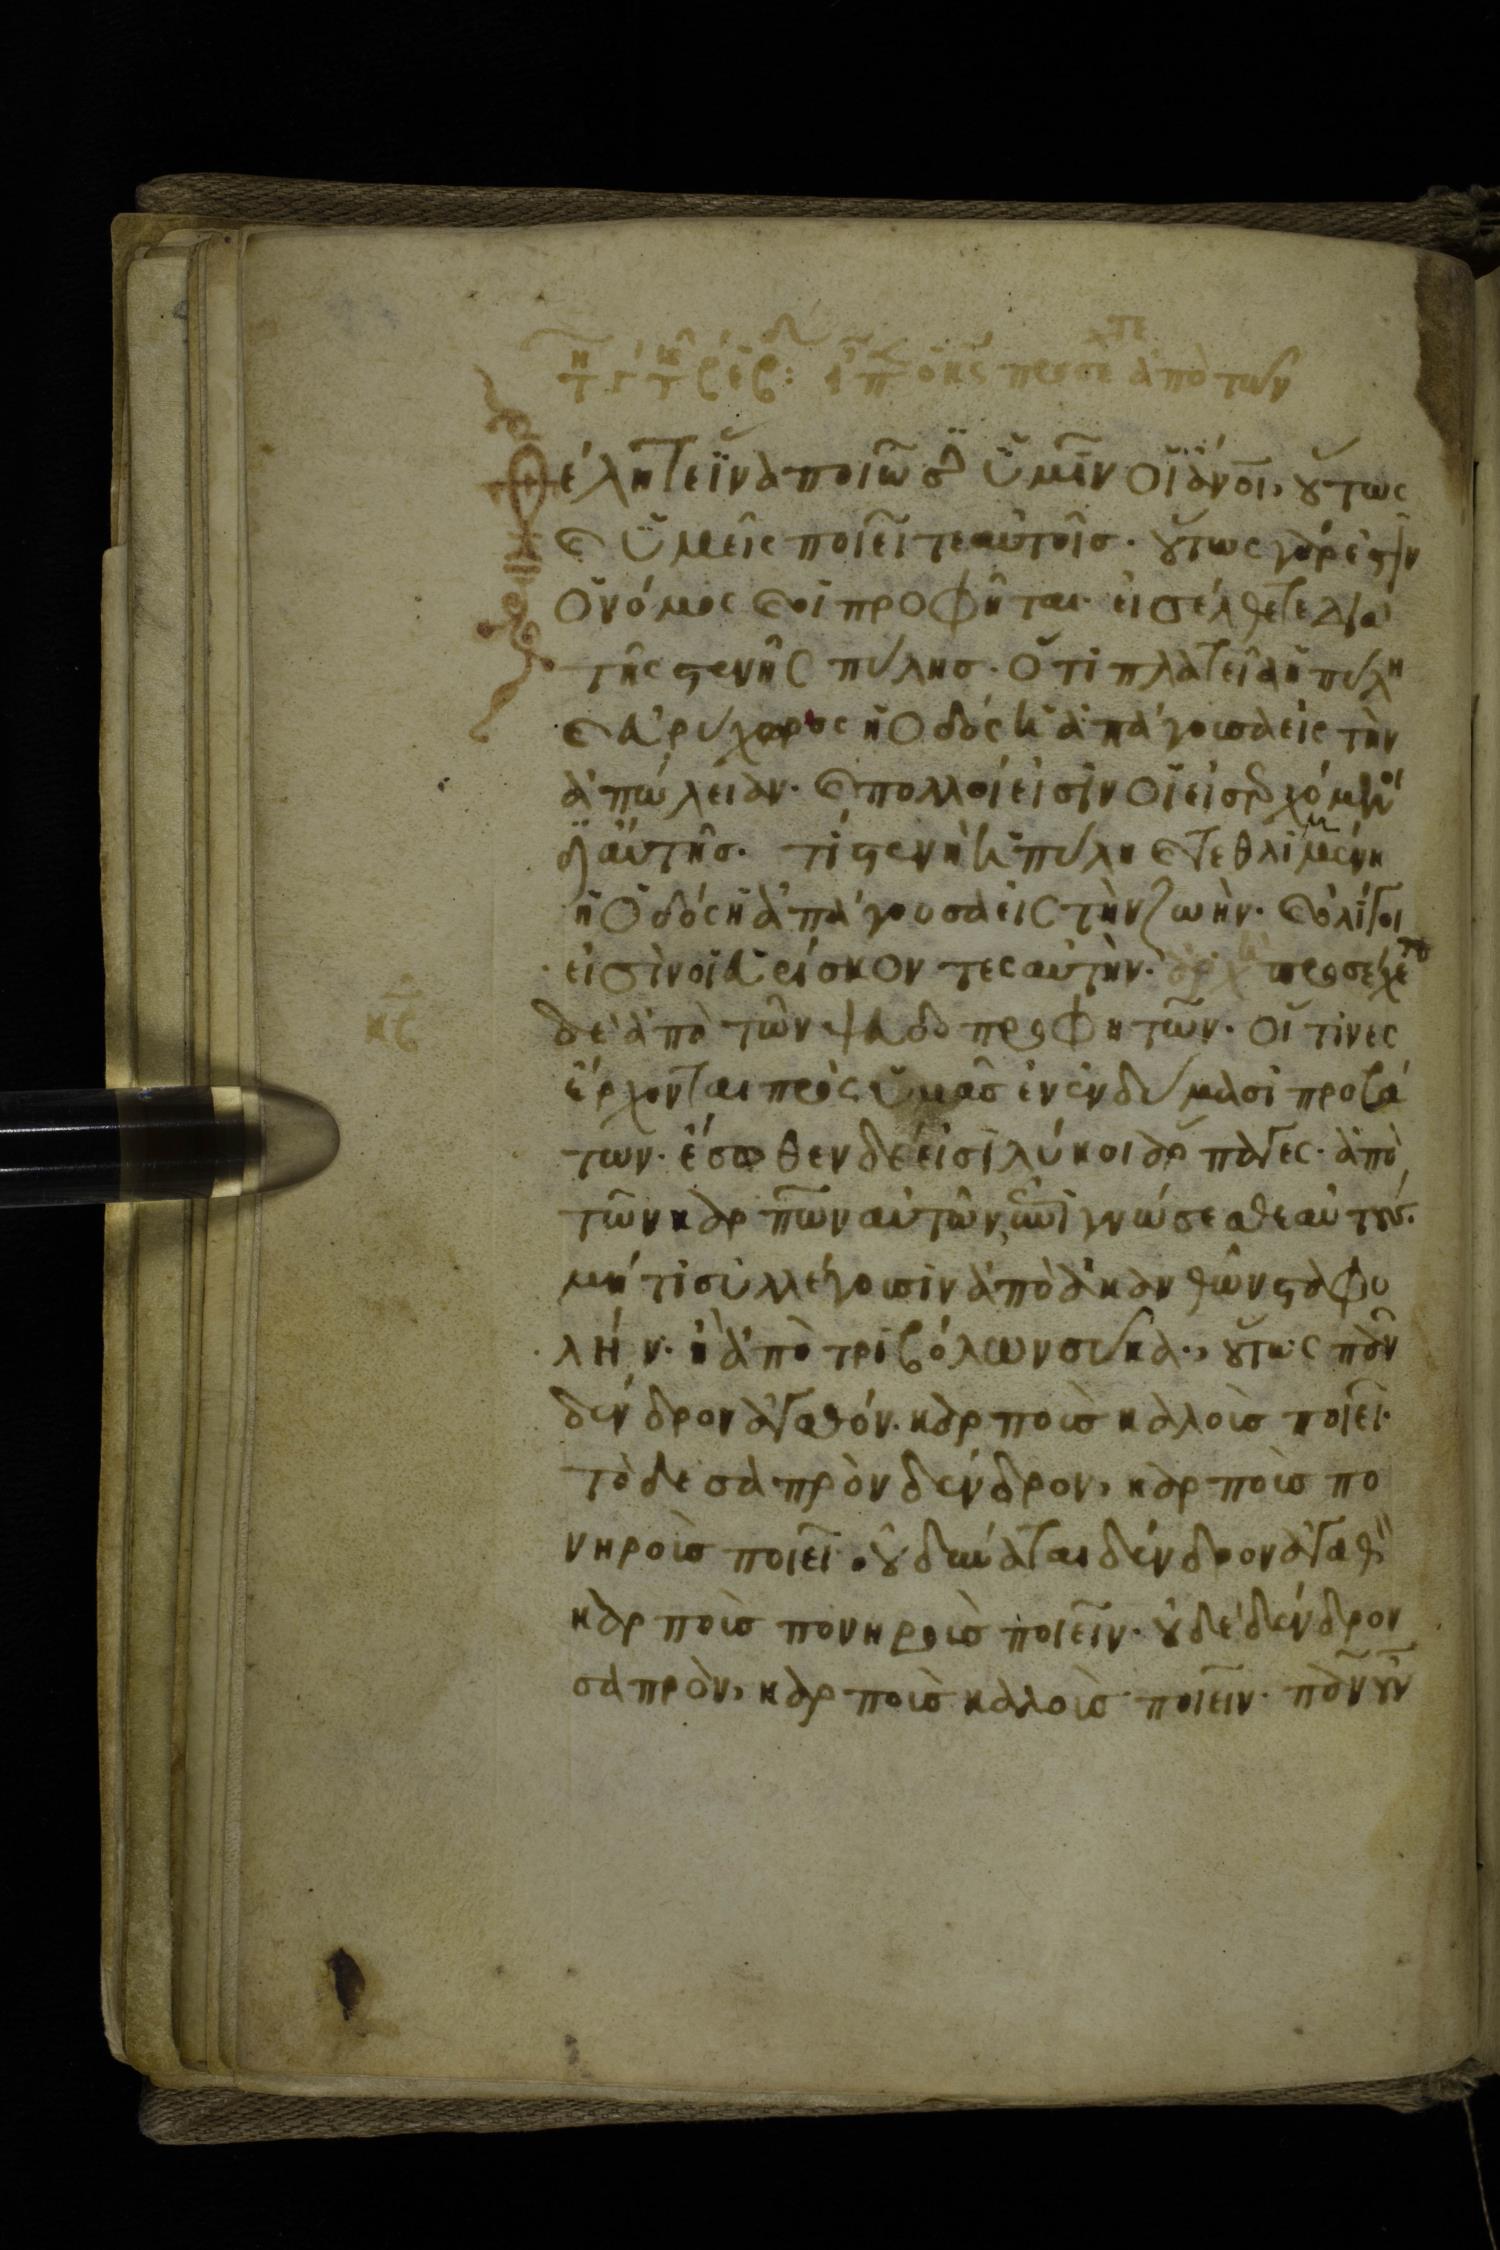 προσε ἀπὸ τῶν
θέλητε ἵνα ποιῶσϊ ὑμῖν οἱ ἄνοι, οὕτως
καὶ ὑμεῖς ποιεῖτε αὐτοῖς· οὕτως γάρ ἐστιν
ὁ νόμος καὶ οἱ προφῆται· εἰσέλθετε διὰ
τῆς στενῆς πύλης· ὅτι πλατεῖα ἡ πύλη
καὶ εὐρύχορος ἡ ὁδός ἡ ἀπάγουσα εἰς τὴν
ἀπώλειαν· καὶ πολλοί εἰσϊν οἱ εἰσερχόμενοι
δι αὐτῆς· τί στενὴ ἡ πύλη καὶ τεθλιμμένη
ἡ ὁδός ἡ ἀπάγουσα εἰς τὴν ζωὴν· καὶ ὀλίγοι
εἰσὶν οἱ εὑρίσκοντες αὐτὴν· ἀρχ προσέχετε
δὲ ἀπὸ τῶν ψευδοπροφητῶν· οἵτινες
ἔρχονται πρὸς ὑμᾶς ἐν ἐνδύμασι προβά
των· ἔσωθεν δέ εἰσὶ λύκοι ἅρπαγες· ἀπὸ
τῶν καρπῶν αὐτῶν, ἐπιγνώσεσθε αὐτούς·
μήτι συλλέγουσιν ἀπὸ ἀκανθῶν σταφυ
λήν· ἢ ἀπὸ τριβόλων σύκα·, οὕτως πᾶν
δένδρον ἀγαθόν· καρποὺς καλοὺς ποιεῖ·
τὸ δὲ σαπρὸν δένδρον, καρποὺς πο
νηροὺς ποιεῖ· οὐ δύναται δένδρον ἀγαθὸν
καρποὺς πονηροὺς ποιεῖν· οὐδὲ δένδρον
σαπρὸν, καρποὺς καλοὺς ποιεῖν· πᾶν οὖν